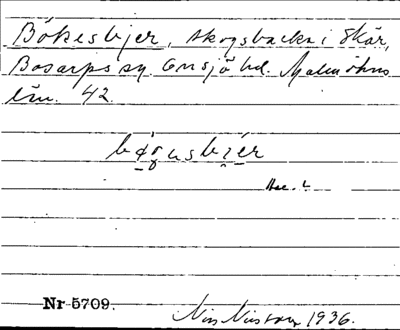 Bökesbjer, skogsbacke i Skår,
Bosarps sn. Onsjö hd. Malmöhus
län. 42.
bøgusbier
Nr 5709.
Nils Nilsson 1936.